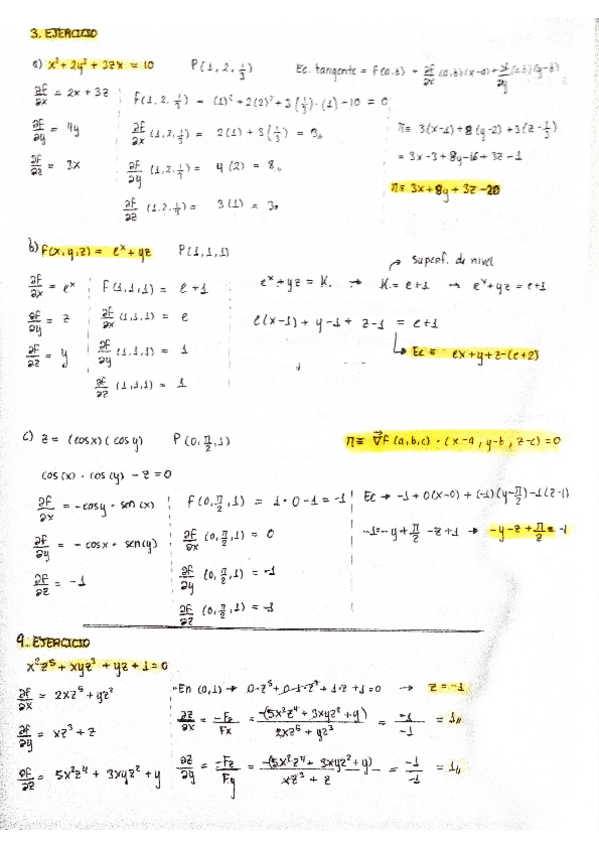 3. EJERCICIO
a) x² + 2y² + 3zx = 10 P(1, 2, 1/3) Ec. tangente = f(a,b) + ∂f/∂x (a,b)(x-a) + ∂f/∂y (a,b)(y-b)
∂f/∂x = 2x + 3z f(1, 2, 1/3) = (1)² + 2(2)² + 3(1/3)·(1) - 10 = 0
∂f/∂y = 4y ∂f/∂x (1, 2, 1/3) = 2(1) + 3(1/3) = 3 π ≡ 3(x-1) + 8(y-2) + 3(z - 1/3)
= 3x - 3 + 8y - 16 + 3z - 1
∂f/∂z = 3x ∂f/∂y (1, 2, 1/3) = 4(2) = 8 π ≡ 3x + 8y + 3z - 20
∂f/∂z (1, 2, 1/3) = 3(1) = 3
b) f(x, y, z) = eˣ + yz P(1, 1, 1)
Superf. de nivel
∂f/∂x = eˣ f(1,1,1) = e + 1 eˣ + yz = K. → K = e + 1 → eˣ + yz = e + 1
∂f/∂y = z ∂f/∂x (1,1,1) = e e(x-1) + y - 1 + z - 1 = e + 1
∂f/∂z = y ∂f/∂y (1,1,1) = 1 Ec ≡ ex + y + z - (e+2)
∂f/∂z (1,1,1) = 1
c) z = (cos x)(cos y) P(0, π/2, 1) π ≡ ∇f(a,b,c) · (x-a, y-b, z-c) = 0
cos(x) · cos(y) - z = 0
∂f/∂x = -cosy · sen(x) f(0, π/2, 1) = 1 · 0 - 1 = -1 Ec → -1 + 0(x-0) + (-1)(y - π/2) - 1(z-1)
∂f/∂y = -cosx · sen(y) ∂f/∂x (0, π/2, 1) = 0 -1 = -y + π/2 - z + 1 → -y - z + π/2 = -1
∂f/∂z = -1 ∂f/∂y (0, π/2, 1) = -1
∂f/∂z (0, π/2, 1) = -1
4. EJERCICIO
x²z⁵ + xyz³ + yz + 1 = 0
∂f/∂x = 2xz⁵ + yz³ En (0,1) → 0·z⁵ + 0·1·z³ + 1·z + 1 = 0 → z = -1
∂f/∂y = xz³ + z ∂z/∂x = -Fz/Fx = -(5x²z⁴ + 3xyz² + y)/2xz⁵ + yz³ = -1/-1 = 1
∂f/∂z = 5x²z⁴ + 3xyz² + y ∂z/∂y = -Fz/Fy = -(5x²z⁴ + 3xyz² + y)/xz³ + z = -1/-1 = 1